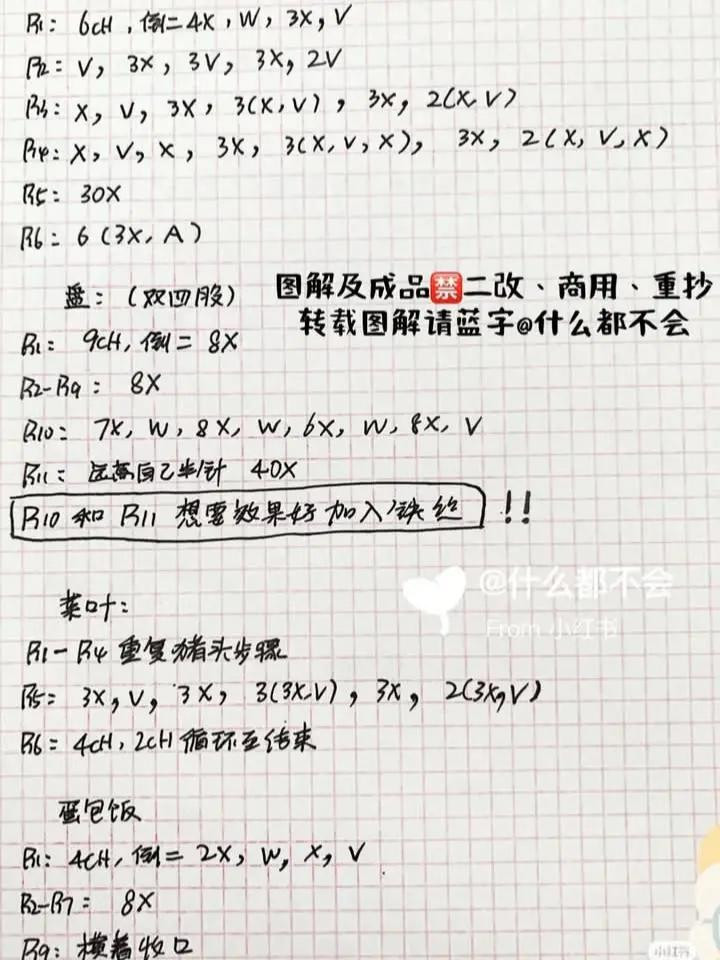 R1: 6CH, 倒二 4X, W, 3X, V
R2: V, 3X, 3V, 3X, 2V
R3: X, V, 3X, 3(X,V), 3X, 2(X,V)
R4: X, V, X, 3X, 3(X,V,X), 3X, 2(X,V,X)
R5: 30X
R6: 6(3X, A)
图解及成品禁二改、商用、重抄
盘:(双四股)
转载图解请蓝字@什么都不会
R1: 9CH, 倒二 8X
R2-R9: 8X
R10: 7X, W, 8X, W, 6X, W, 8X, V
R11: 自己半针 40X
R10 和 R11 想要效果好 加入铁丝 !!
@什么都不会
From 小红书
菜叶:
R1-R4 重复猪头步骤
R5: 3X, V, 3X, 3(3X,V), 3X, 2(3X,V)
R6: 4CH, 2CH 循环至结束
蛋包饭
R1: 4CH, 倒二 2X, W, X, V
R2-R7: 8X
R9: 横着收口
小红书